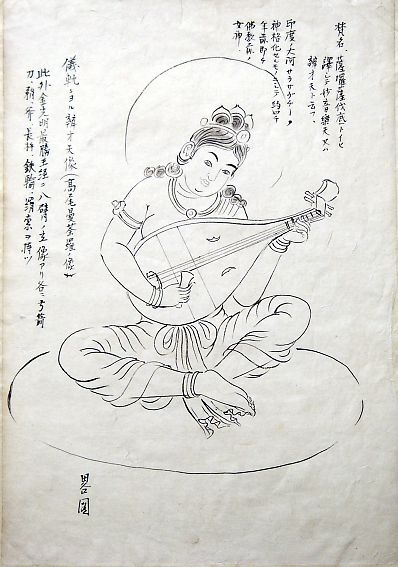 梵名、薩羅薩伐底トイヒ
譯シテ妙音樂天又ハ
辯才天ト云フ、
印度ノ大河サラサバチーヲ
神格化セルモノニシテ約四千
年前即チ
佛教以前ノ
女神、
儀軌ニヨル辯才天像(高尾曼荼羅ノ像)
此外金光明最勝王經ニ八臂ノ立像アリ各弓箭
刀、鞘、斧、長杵、鉄輪、羂索ヲ持ツ
畧図